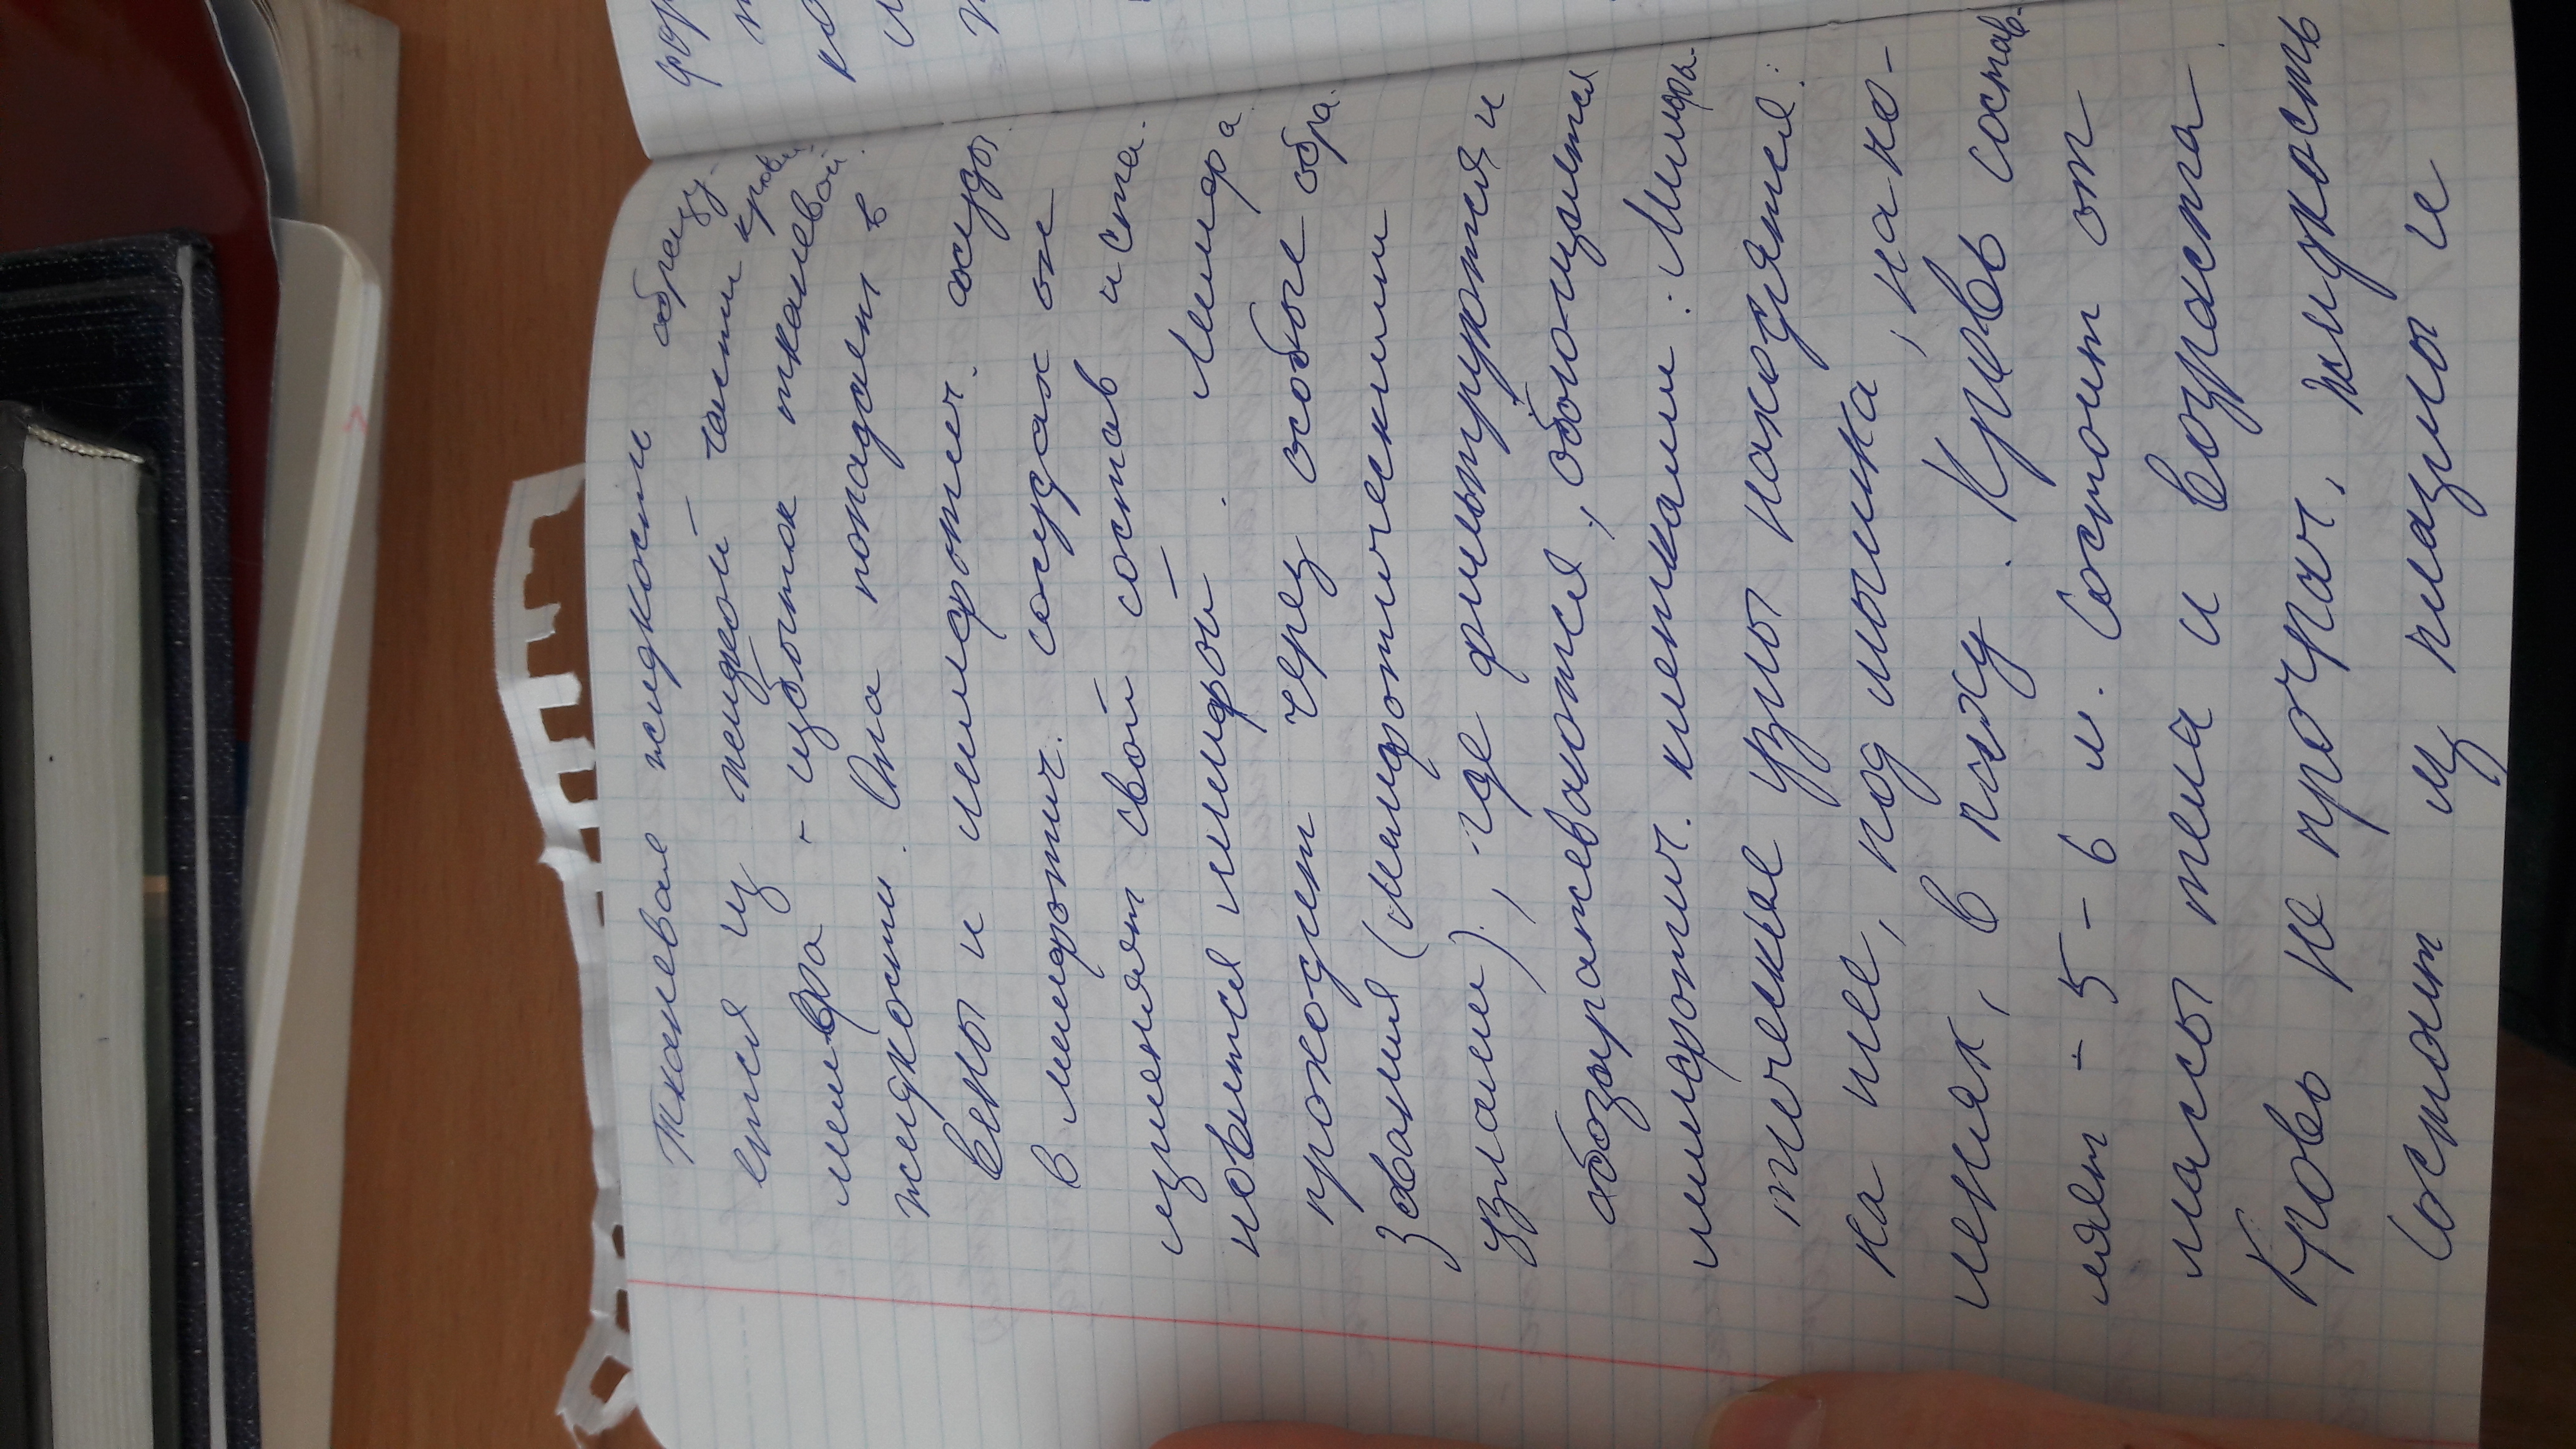 Тканевая жидкости образу-
ется из жидкой части крови
лимфа - избыток тканевой
жидкости. Она попадает в
вены и лимфотич. сосуды
в лимфотич. сосудах он
изменяет свой состав и ста-
новится лимфой. Лимфа
проходит через особые обра-
зования (лимфотическими
узлами), где фильтруются и
обозораживаются, обогощается
лимфотич. клетками. Лимфа-
тические узлы находятся:
на шее, под мышка, на ко-
ленях, в паху. Кровь состав-
ляет - 5 - 6 л. Состоит от
массы тела и возраста.
Кровь не прозрач. жидкость
Состоит из плазмы и